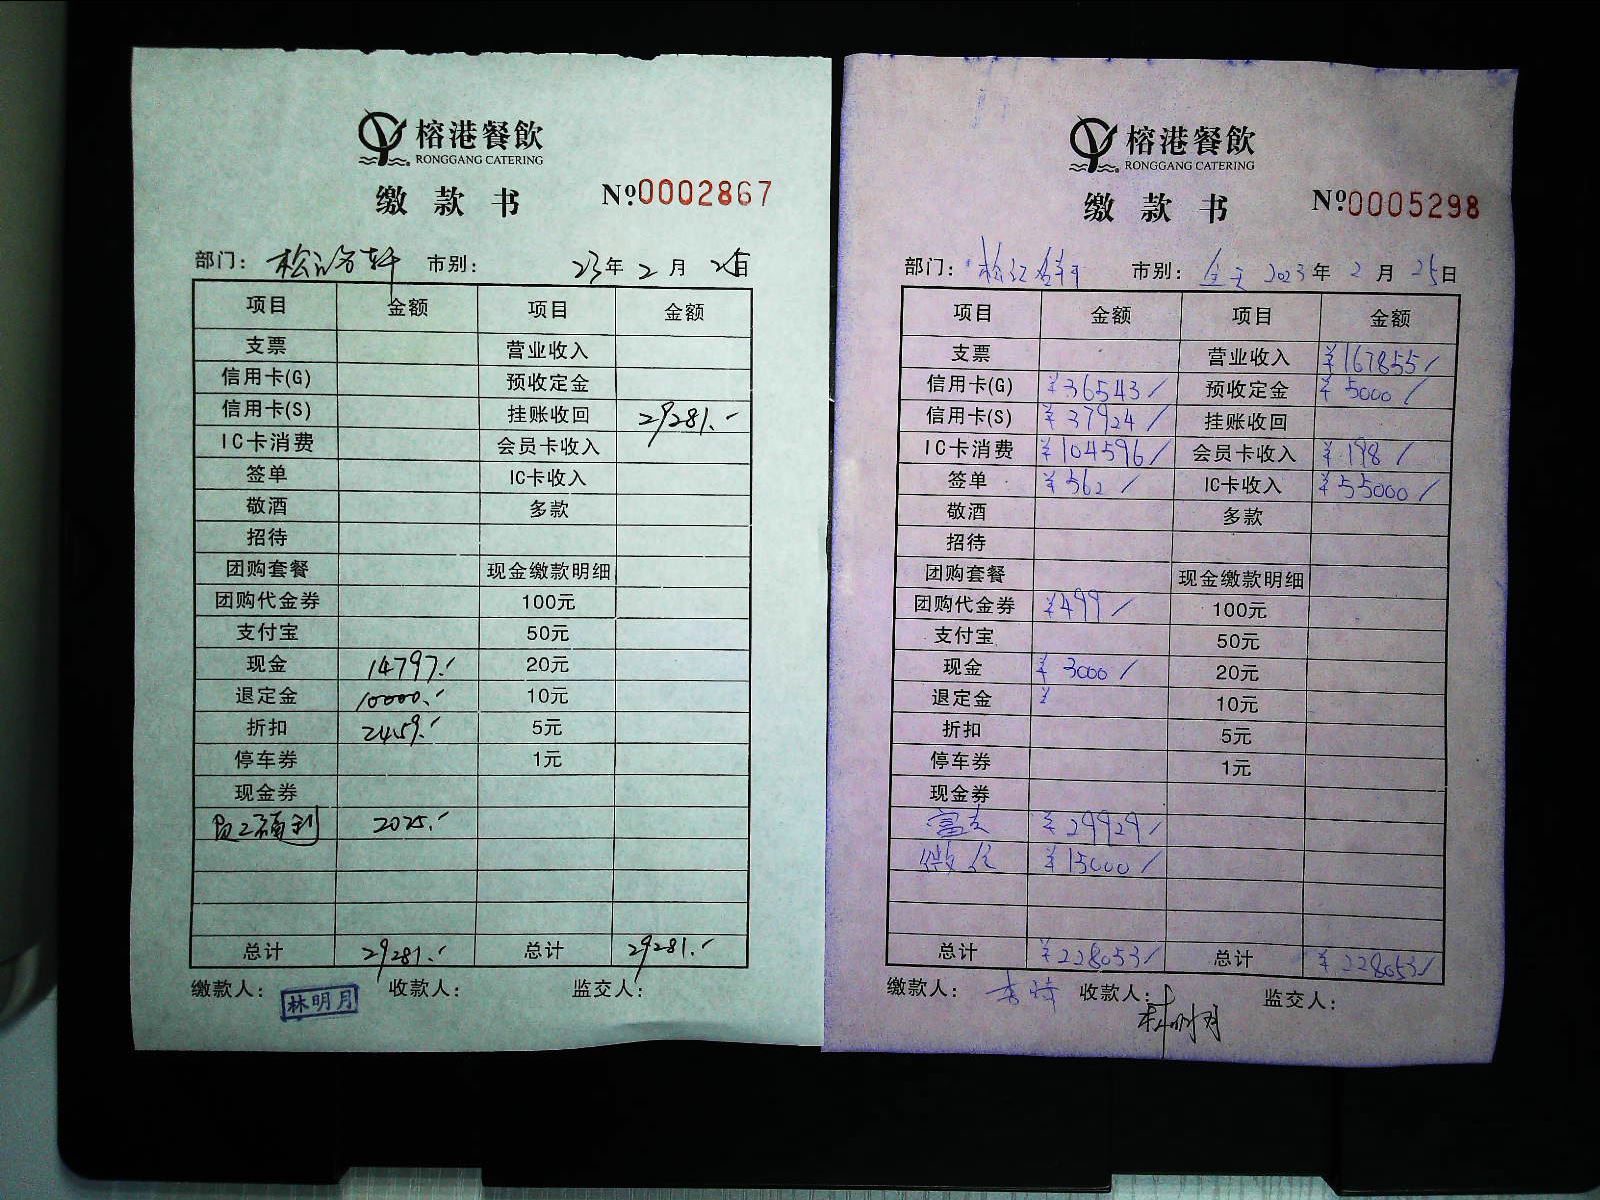 榕港餐飲
RONGGANG CATERING
缴款书 №0002867
部门: 松江名轩 市别: 23年2月25日
项目 金额 项目 金额
支票 营业收入
信用卡(G) 预收定金
信用卡(S) 挂账收回 29281.-
IC卡消费 会员卡收入
签单 IC卡收入
敬酒 多款
招待
团购套餐 现金缴款明细
团购代金券 100元
支付宝 50元
现金 14797.- 20元
退定金 10000.- 10元
折扣 2459.- 5元
停车券 1元
现金券
员工福利 2025.-
总计 29281.- 总计 29281.-
缴款人: 林明月 收款人: 监交人:
榕港餐飲
RONGGANG CATERING
缴款书 №0005298
部门: 松江名轩 市别: 全天 2023年2月25日
项目 金额 项目 金额
支票 营业收入 ¥167855/
信用卡(G) ¥36543/ 预收定金 ¥5000/
信用卡(S) ¥37924/ 挂账收回
IC卡消费 ¥104596/ 会员卡收入 ¥198/
签单 ¥562/ IC卡收入 ¥55000/
敬酒 多款
招待
团购套餐 现金缴款明细
团购代金券 ¥499/ 100元
支付宝 50元
现金 ¥3000/ 20元
退定金 ¥ 10元
折扣 5元
停车券 1元
现金券
富友 ¥29929/
微信 ¥15000/
总计 ¥228053/ 总计 ¥228053/
缴款人: 收款人: 林明月 监交人: